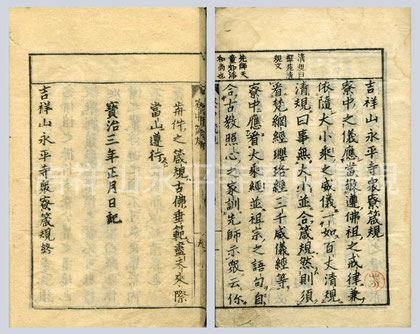 吉祥山永平寺衆寮箴規
寮中之儀應當敬遵佛祖之戒律兼
依隨大小乘之威儀一如百丈清規
清規曰事無大小並合箴規然則須
看梵網經瓔珞經三千威儀經等
寮中應看大乘經並祖宗之語句自
合古教照心之家訓先師示衆云你
右件之箴規古佛垂範盡未來際
當山遵行
寶治三年正月日記
吉祥山永平寺衆寮箴規終